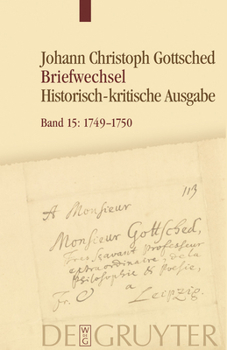 Johann Christoph Gottsched
Briefwechsel
Historisch-kritische Ausgabe
Band 15: 1749–1750
113
A Monsieur
Monsieur Gottsched,
Professeur
extraordinaire, de la
Philosophie & Poesie,
Fr.
a
Leipzig.
DE
G
GRUYTER